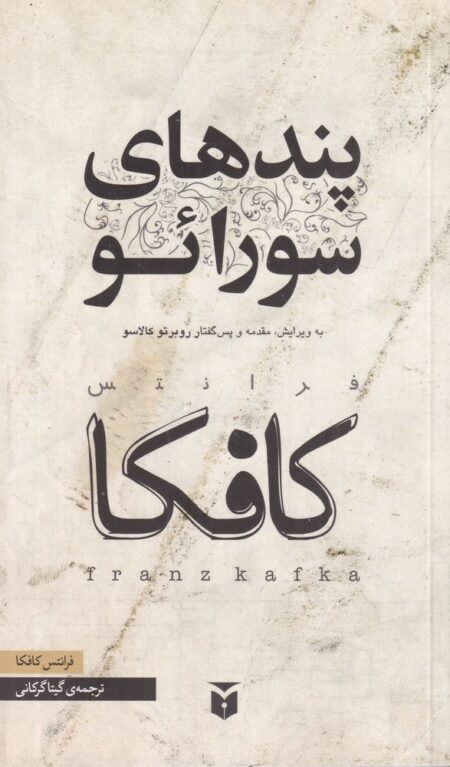 پندهای
سورائو
به ویرایش، مقدمه و پس‌گفتار روبرتو کالاسو
فرانتس
کافکا
franz kafka
فرانتس کافکا
ترجمه‌ی گیتا گرکانی